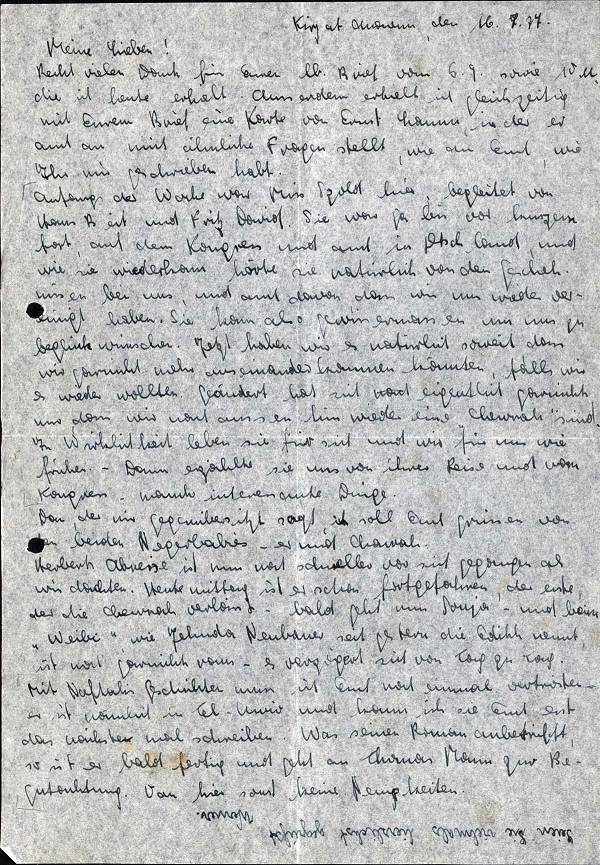 Kiryat Anavim, den 16. 9. 37.
Meine Lieben!
Recht vielen Dank für Euren lb. Brief vom 6.9. sowie
die ich heute erhielt. Ausserdem erhielt ich gleichzeitig
mit Eurem Brief eine Karte von Ernst in der er
auch an mich ähnliche Fragen stellt, wie an Euch, wie
Ihr mir geschrieben habt.
Anfangs der Woche war Miss hier, begleitet von
Hans B und Fritz David. Sie war ja bis vor kurzem
fort, auf dem Kongress und auch in Dtschland und
wie sie wiederkam hörte sie natürlich von den Gescheh-
nissen bei uns, und auch davon dass wir uns wieder ver-
einigt haben. Sie kam also gewissermassen um uns zu
beglückwünschen. Jetzt haben wir es natürlich soweit dass
wir garnicht mehr auseinanderkommen könnten, falls wir
es wieder wollten. Geändert hat sich noch eigentlich garnichts
nur dass wir nach aussen hin wieder eine „Chewrah" sind.
In Wirklichkeit leben sie für sich und wir für uns wie
früher. - Dann erzählte sie uns von ihrer Reise und vom
Kongress - manch interessante Dinge.
Dan der mir gegenübersitzt sagt, ich soll Euch grüssen von
den beiden Negerbabies - er und Chawah.
Herberts Abreise ist nun noch schneller vor sich gegangen als
wir dachten. Heute mittag ist er schon fortgefahren, der erste,
der die Chewrah verlässt - bald geht nun Sonja - und beim
„Weibi", wie Jehuda Neubauer seit gestern die Edith nennt,
ist noch garnichts raus - es verzögert sich von Tag zu Tag.
Mit Naftalis Geschichten muss ich Euch noch einmal vertrösten -
er ist nämlich in Tel-Awiw und kann ich sie Euch erst
das nächste mal schreiben. Was seinen Roman anbetrifft,
so ist er bald fertig und geht an Thomas Mann zur Be-
gutachtung. Von hier sonst keine Neuigkeiten.
Seien Sie vielmals herzlichst gegrüsst